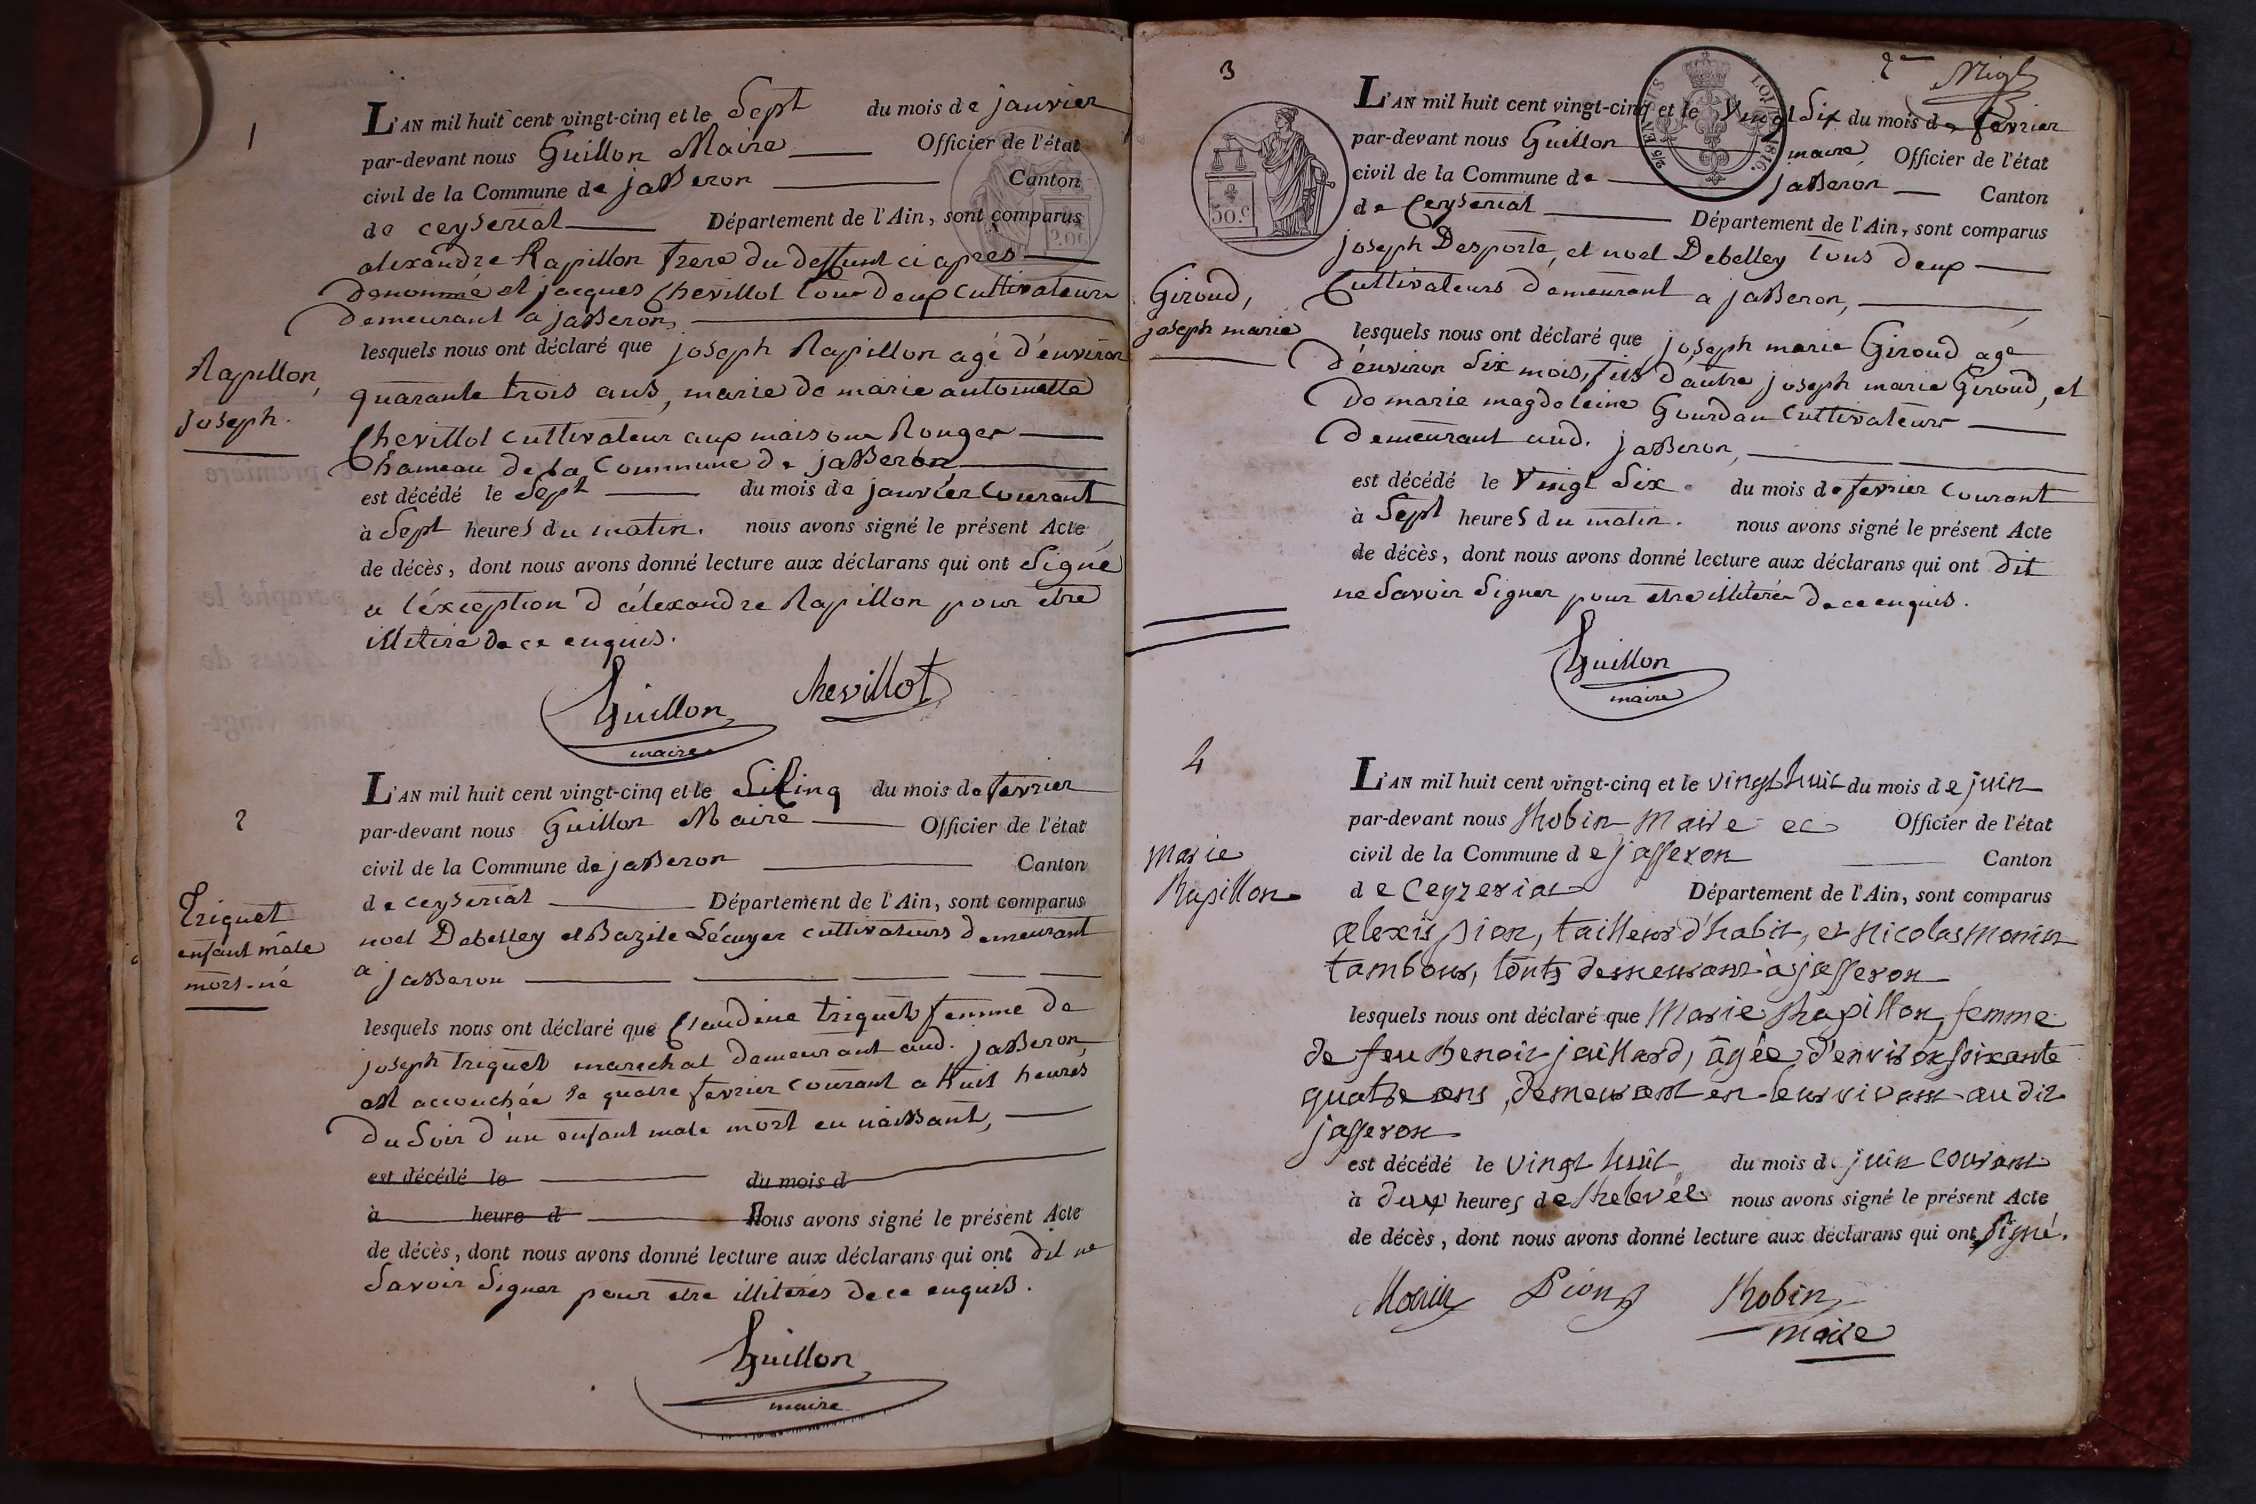 1
L'AN mil huit cent vingt-cinq et le Sept du mois de janvier
par-devant nous Guillon Maire Officier de l'état
civil de la Commune de jasseron Canton
de ceyseriat Département de l'Ain, sont comparus
alexandre Rapillon frere du deffunt ci apres
denommé et jacques Chevillot tous deux cultivateurs
demeurant a jasseron,
Rapillon,
joseph.
lesquels nous ont déclaré que joseph Rapillon agé d'environ
quarante trois ans, marie de marie antoinette
Chevillot cultivateur aux maisons Rouges
hameau de la Commune de jasseron
est décédé le Sept du mois de janvier courant
à Sept heures du matin. nous avons signé le présent Acte
de décès, dont nous avons donné lecture aux déclarans qui ont Signé
a l'éxception d'alexandre Rapillon pour etre
illitiré de ce enquis.
Guillon
maire
Chevillot
2
L'AN mil huit cent vingt-cinq et le Cinq du mois de fevrier
par-devant nous Guillon Maire Officier de l'état
civil de la Commune de jasseron Canton
de ceyseriat Département de l'Ain, sont comparus
Triquet
enfant mâle
mort-né
noel Debelley et Bazile Lécuyer cultivateurs demeurant
a jasseron
lesquels nous ont déclaré que Claudine triquet femme de
joseph triquet marechal demeurant aud. jasseron,
est accouchée le quatre fevrier courant a huit heures
du Soir d'un enfant male mort en naissant,
est décédé le du mois d
à heure d Nous avons signé le présent Acte
de décès, dont nous avons donné lecture aux déclarans qui ont dit ne
Savoir Signer pour etre illiterés de ce enquis.
Guillon
maire
3
2me
50.c
LOI 1816
L'AN mil huit cent vingt-cinq et le Vingt Six du mois de fevrier
par-devant nous Guillon maire, Officier de l'état
civil de la Commune de jasseron Canton
de Ceyseriat Département de l'Ain, sont comparus
joseph Desporte, et noel Debelley tous deux
Cultivateurs demeurant a jasseron,
Giroud,
joseph marie
lesquels nous ont déclaré que joseph marie Giroud agé
d'environ Six mois, fils d'autre joseph marie Giroud, et
de marie magdeleine Gourdan Cultivateurs
demeurant aud. jasseron,
est décédé le Vingt Six du mois de fevrier courant
à Sept heures du matin. nous avons signé le présent Acte
de décès, dont nous avons donné lecture aux déclarans qui ont dit
ne Savoir Signer pour etre illiterés de ce enquis.
Guillon
maire
4
L'AN mil huit cent vingt-cinq et le vingt huit du mois de juin
par-devant nous Robin Maire Officier de l'état
civil de la Commune de jasseron Canton
Marie
Rapillon
de Ceyzeriat Département de l'Ain, sont comparus
alexis pion, tailleur d'habit, et Nicolas Monin
tambour, touts demeurant à jasseron
lesquels nous ont déclaré que Marie Rapillon, femme
de feu Benoit jaillard, âgée d'environ soixante
quatre ans, demeurant en leur vivant au dit
jasseron
est décédé le vingt huit du mois de juin courant
à deux heures de Relevée nous avons signé le présent Acte
de décès, dont nous avons donné lecture aux déclarans qui ont signé.
Monin Pion Robin
maire